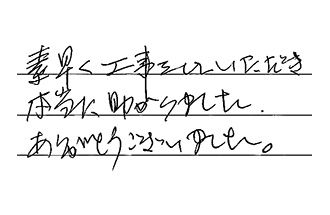 素早く工事をしていただき
本当に助かりました.
ありがとうございました。